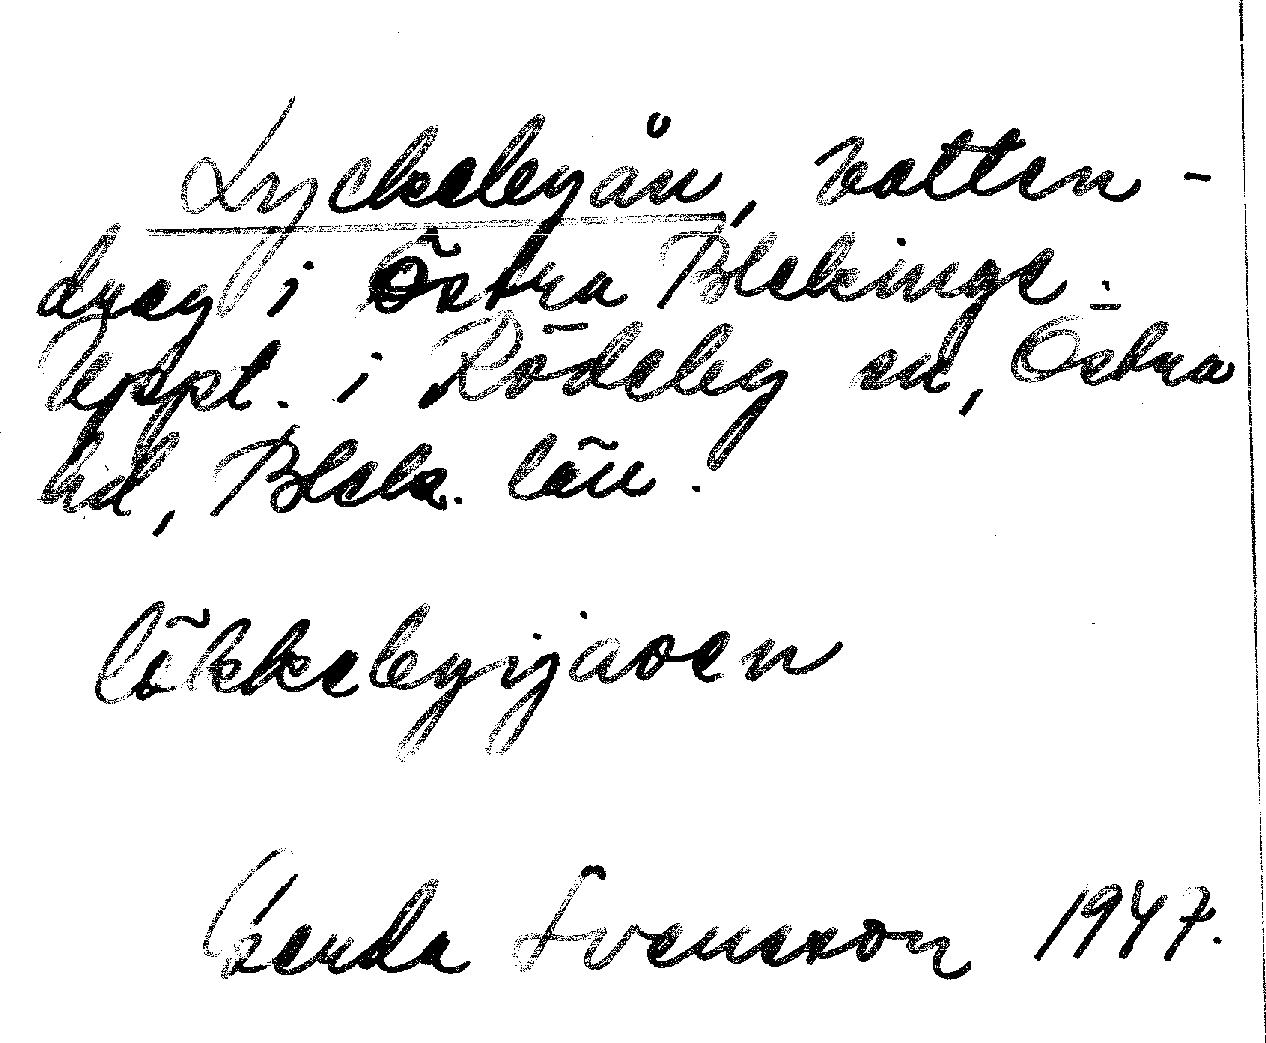 Lyckebyån, vatten-
drag i Östra Blekinge.
Uppt. i Rödeby sn, Östra
hd, Blek. län.
lökkebyjaoen
Gerda Svensson 1947.